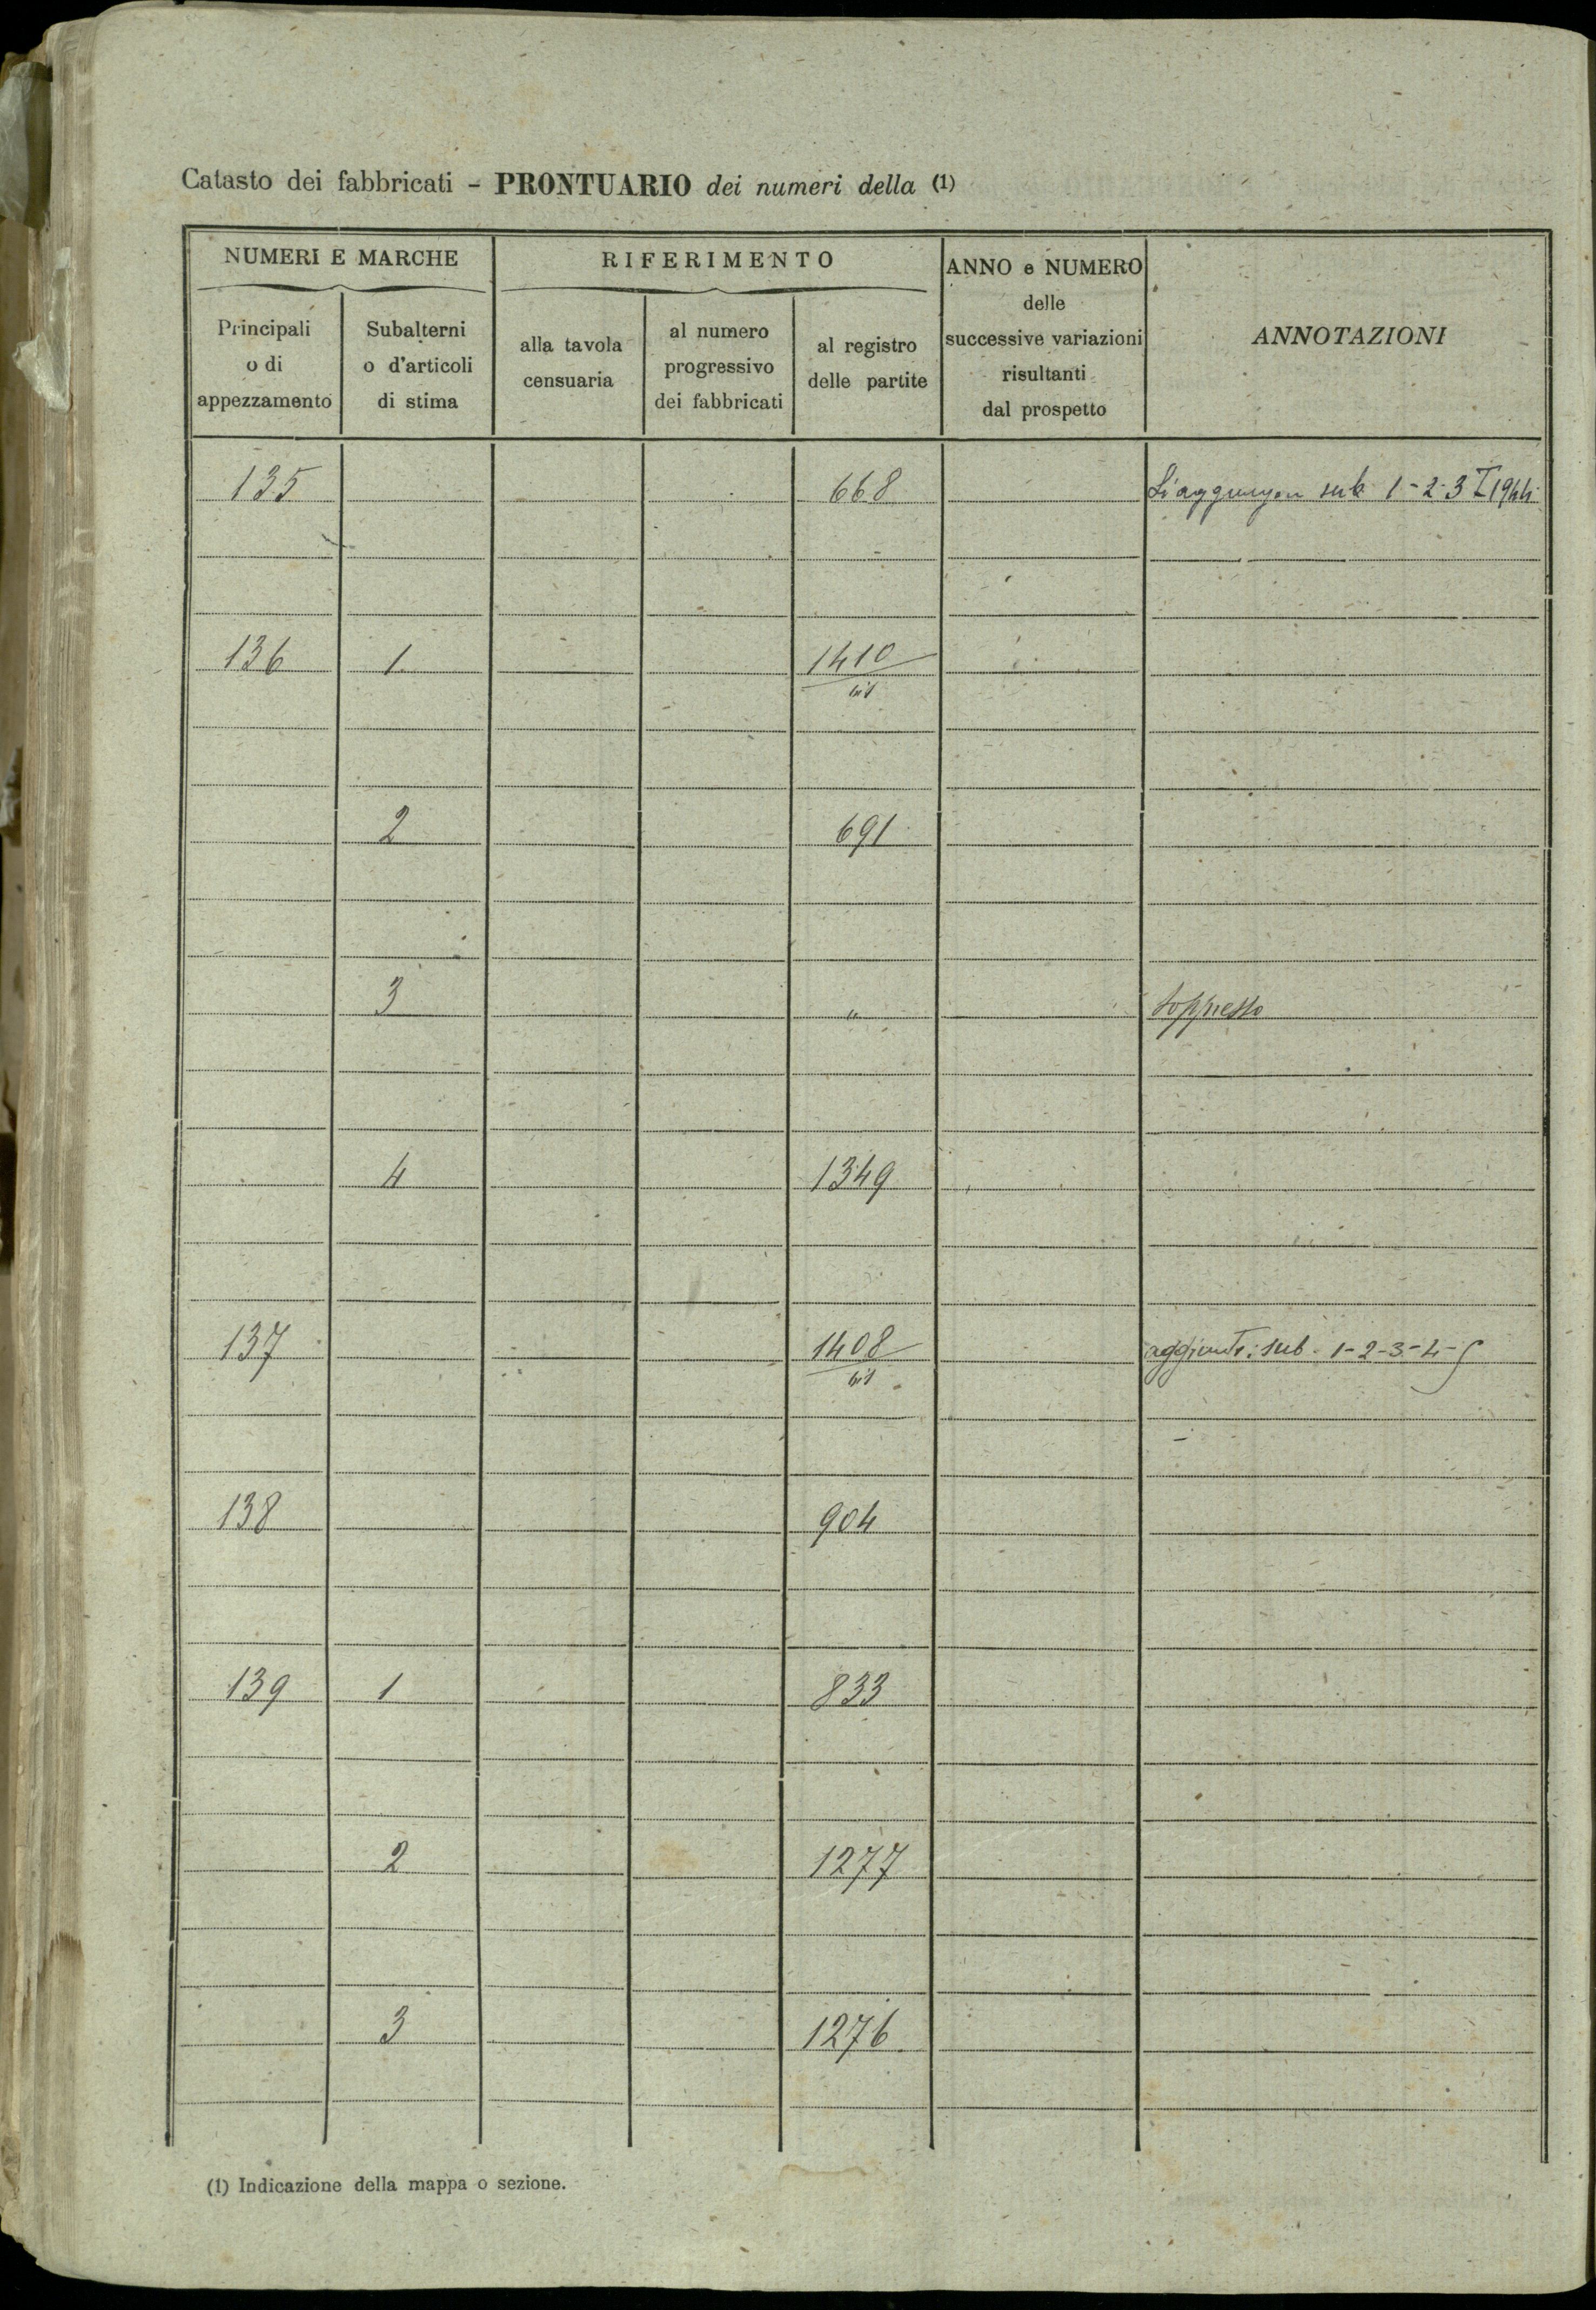 Catasto dei fabbricati - PRONTUARIO dei numeri della (1)
NUMERI E MARCHE
RIFERIMENTO
ANNO e NUMERO
delle
successive variazioni
risultanti
dal prospetto
ANNOTAZIONI
Principali
o di
appezzamento
Subalterni
o d'articoli
di stima
alla tavola
censuaria
al numero
progressivo
dei fabbricati
al registro
delle partite
135 668 Si aggiungon sub 1-2-3 I 1944
136 1 1410
bis
2 691
3 " soppresso
4 1349
137 1408 aggiunti: sub. 1-2-3-4-5
bis
138 904
139 1 833
2 1277
3 1276
(1) Indicazione della mappa o sezione.